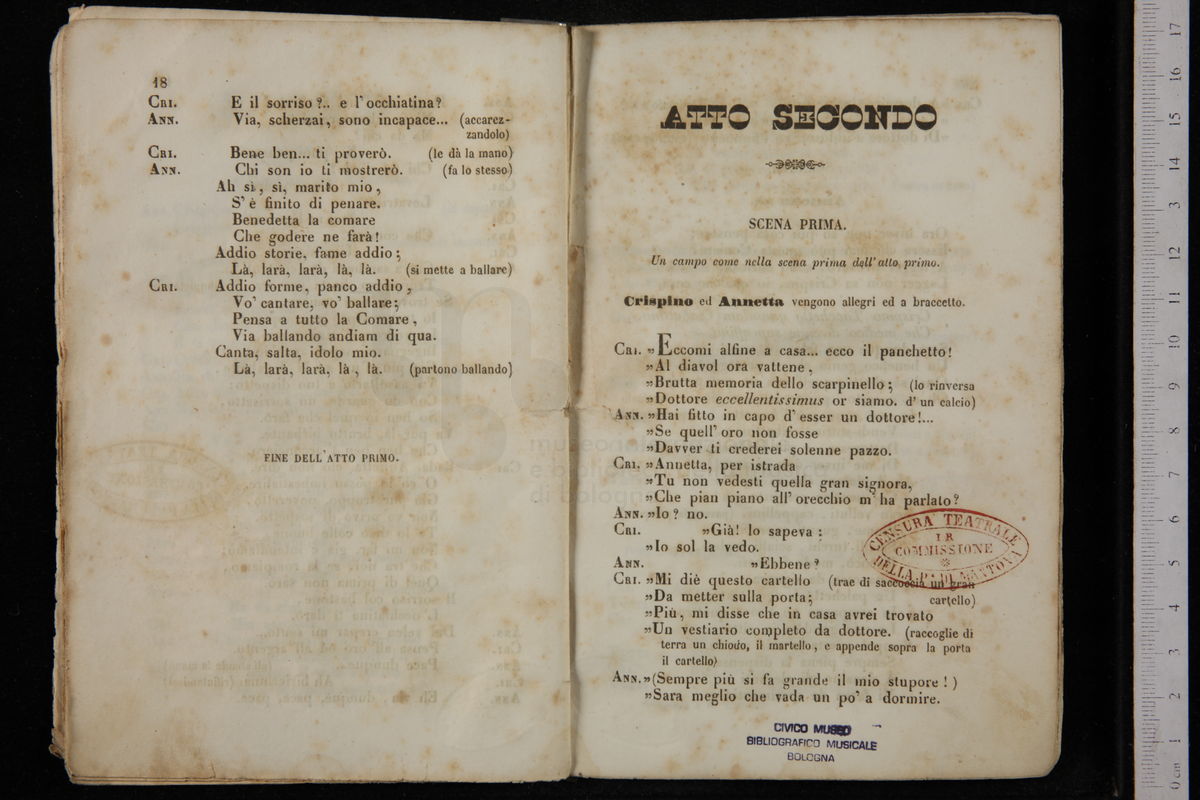 18
CRI. E il sorriso?.. e l'occhiatina?
ANN. Via, scherzai, sono incapace... (accarez-
zandolo)
CRI. Bene ben... ti proverò. (le dà la mano)
ANN. Chi son io ti mostrerò. (fa lo stesso)
Ah sì, sì, marito mio,
S'è finito di penare.
Benedetta la comare
Che godere ne farà!
Addio storie, fame addio;
Là, larà, larà, là, là. (si mette a ballare)
CRI. Addio forme, panco addio,
Vo' cantare, vo' ballare;
Pensa a tutto la Comare,
Via ballando andiam di qua.
Canta, salta, idolo mio.
Là, larà, larà, là, là. (partono ballando)
FINE DELL'ATTO PRIMO.
ATTO SECONDO
SCENA PRIMA.
Un campo come nella scena prima dell'atto primo.
Crispino ed Annetta vengono allegri ed a braccetto.
CRI. »Eccomi alfine a casa... ecco il panchetto!
»Al diavol ora vattene,
»Brutta memoria dello scarpinello; (lo rinversa
»Dottore eccellentissimus or siamo. d'un calcio)
ANN. »Hai fitto in capo d'esser un dottore!...
»Se quell'oro non fosse
»Davver ti crederei solenne pazzo.
CRI. »Annetta, per istrada
»Tu non vedesti quella gran signora,
»Che pian piano all'orecchio m'ha parlato?
ANN. »Io? no.
CRI. »Già! lo sapeva:
»Io sol la vedo.
ANN. »Ebbene?
CRI. »Mi diè questo cartello (trae di saccoccia un gran
»Da metter sulla porta; cartello)
»Più, mi disse che in casa avrei trovato
»Un vestiario completo da dottore. (raccoglie di
terra un chiodo, il martello, e appende sopra la porta
il cartello)
ANN. »(Sempre più si fa grande il mio stupore!)
»Sara meglio che vada un po' a dormire.
CENSURA TEATRALE
I R
COMMISSIONE
DELLA P. DI MANTOVA
CIVICO MUSEO
BIBLIOGRAFICO MUSICALE
BOLOGNA